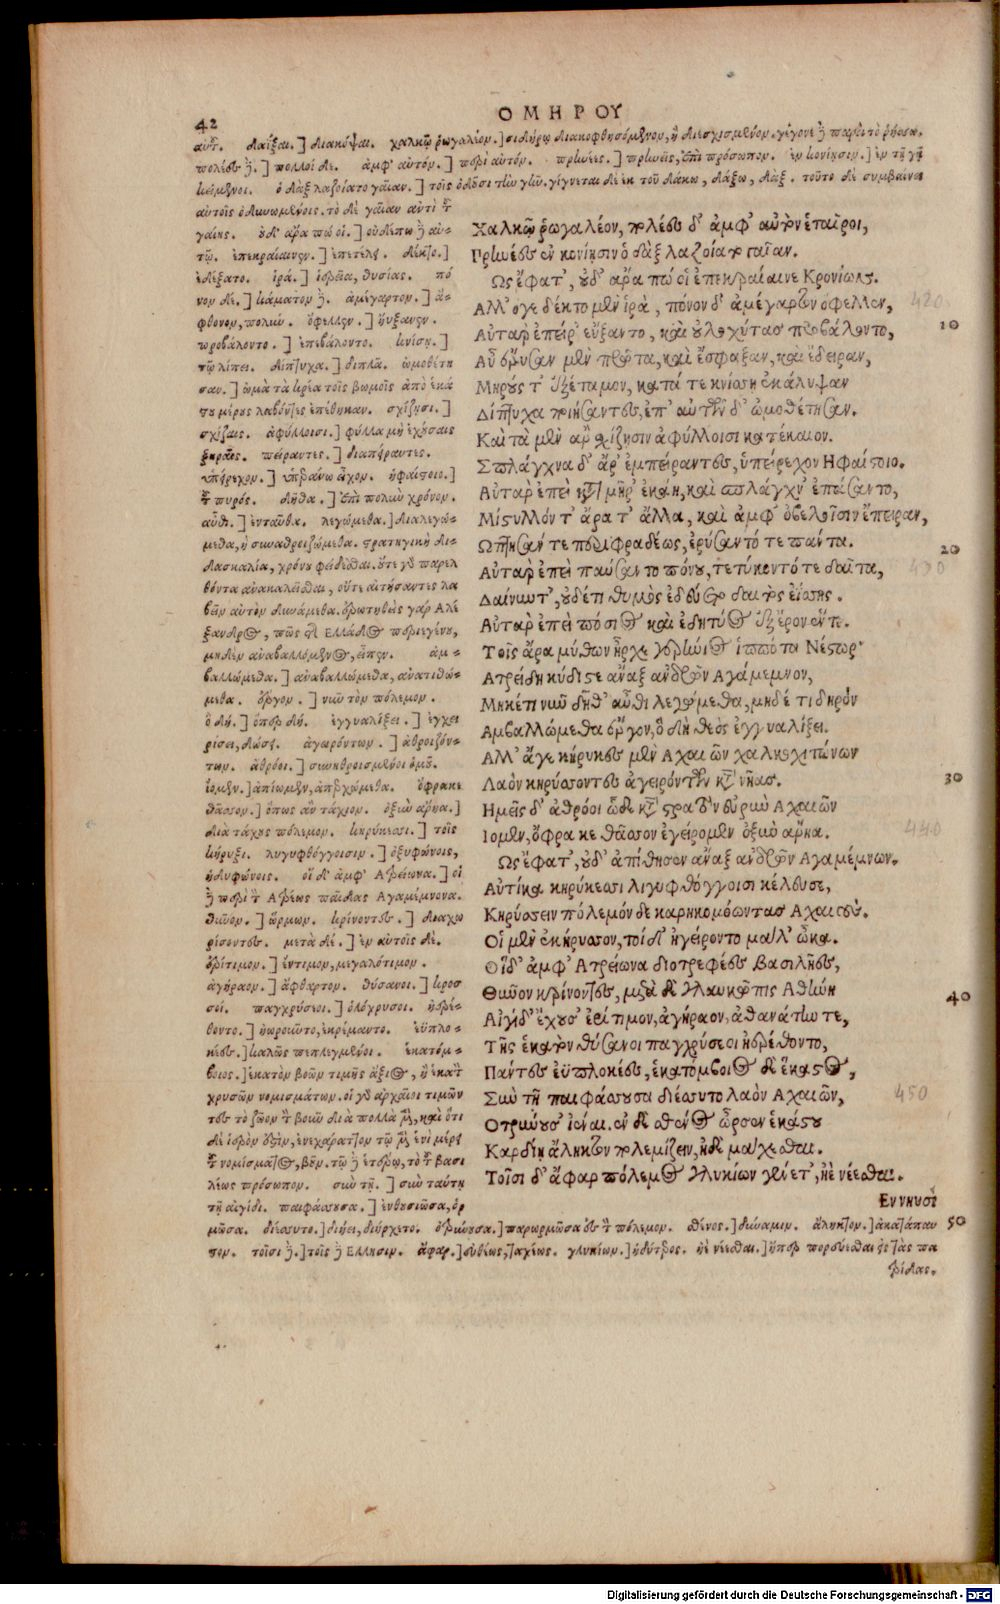 42
ΟΜΗΡΟΥ
αὐτ. δαΐξαι.] διακόψαι. χαλκῷ ῥωγαλέον.] σιδήρῳ διακοφθησόμενον, ἢ διεσχισμένον. γέγονε δὲ παρὰ τὸ ῥήσσω.
πολέες δὲ.] πολλοὶ δὲ. ἀμφ' αὐτόν.] περὶ αὐτόν. πρηνέες.] πρηνεῖς, ἐπὶ πρόσωπον. ἐν κονίῃσιν.] ἐν τῇ γῇ
κείμενοι. ὀδὰξ λαζοίατο γαῖαν.] τοῖς ὀδοῦσι τὴν γῆν. γίγνεται δὲ ἐκ τοῦ δάκω, δάξω, δάξ. τοῦτο δὲ συμβαίνει
αὐτοῖς ὀδυνωμένοις. τὸ δὲ γαῖαν ἀντὶ τ
γαίης. οὐδ' ἄρα πώ οἱ.] οὐδέπω δὲ αὐ-
τῷ. ἐπεκραίαινεν.] ἐπετέλει. δέκτο.]
ἐδέξατο. ἱρά.] ἱερεῖα, θυσίας. πό
νον δὲ.] κάματον δὲ. ἀμέγαρτον.] ἄ-
φθονον, πολύν. ὄφελλεν.] ηὔξανεν.
προβάλοντο.] ἐπεβάλοντο. κνίσῃ.]
τῷ λίπει. δίπτυχα.] διπλᾶ. ὠμοθέτη
σαν.] ὠμὰ τὰ κρέα τοῖς βωμοῖς ἀπὸ ἑκά
στου μέρους λαβόντες ἐπέθηκαν. σχίζῃσι.]
σχίζαις. ἀφύλλοισι.] φύλλα μὴ ἐχούσαις
ξηραῖς. πείραντες.] διαπείραντες.
ὑπείρεχον.] ὑπεράνω εἶχον. ἡφαίστοιο.]
τ πυρός. δῆθα.] ἐπὶ πολὺν χρόνον.
αὖθι.] ἐνταῦθα. λεγώμεθα.] διαλεγώ-
μεθα, ἢ συναθροιζώμεθα. στρατηγικὴ δι-
δασκαλία, χρόνου φείδεσθαι. οὔτε γὰρ παρελ
θόντα ἀνακαλεῖσθαι, οὔτε αἰτήσαντες λα
βεῖν αὐτὸν δυνάμεθα. ἐρωτηθεὶς γὰρ Αλέ
ξανδρος, πῶς τ Ελλάδος περιεγένου,
μηδὲν ἀναβαλλόμενος, εἶπεν. ἀμ-
βαλλώμεθα.] ἀναβαλλώμεθα, ἀνατιθώ-
μεθα. ἔργον.] νῦν τὸν πόλεμον.
ὃ δή.] ὅπερ δή. ἐγγυαλίξει.] ἐγχει
ρίσει, δώσει. ἀγειρόντων.] ἀθροιζόν-
των. ἀθρόοι.] συνηθροισμένοι ὁμοῦ.
ἴομεν.] ἀπίωμεν, ἀπερχώμεθα. ὄφρα κε
θᾶσσον.] ὅπως ἂν τάχιον. ὀξὺν ἄρηα.]
διὰ τάχους πόλεμον. κηρύκεσσι.] τοῖς
κήρυξι. λιγυφθόγγοισιν.] ὀξυφώνοις,
ἡδυφώνοις. οἱ δ' ἀμφ' Ατρείωνα.] οἱ
δὲ περὶ τ Ατρέως παῖδας Αγαμέμνονα.
θῦνον.] ὥρμων. κρίνοντες.] διαχω
ρίζοντες. μετὰ δέ.] ἐν αὐτοῖς δέ.
ἐρίτιμον.] ἔντιμον, μεγαλότιμον.
ἀγήραον.] ἄφθαρτον. θύσανοι.] κροσ
σοί. παγχρύσεοι.] ὁλόχρυσοι. ἠερέ-
θοντο.] ᾐωροῦντο, ἐκρέμαντο. ἐϋπλο-
κέες.] καλῶς πεπλεγμένοι. ἑκατόμ-
βοιος.] ἑκατὸν βοῶν τιμῆς ἄξιος, ἢ ἑκατ
χρυσῶν νομισμάτων. οἱ γὰρ ἀρχαῖοι τιμῶν
τες τὸ ζῶον τ βοῦν διὰ πολλὰ μ, καὶ ὅτι
δὲ ἱερὸν ἔστιν, ἐνεχάραττον τῷ μ ἑνὶ μέρει
τ νομίσματος, βοῦν. τῷ δὲ ἑτέρῳ, τὸ τ βασι
λέως πρόσωπον. σὺν τῇ.] σὺν ταύτῃ
τῇ αἰγίδι. παιφάσσουσα.] ἐνθουσιῶσα, ὁρ
μῶσα. διέσσυτο.] διῄει, διήρχετο. ὀτρύνουσα.] παρορμῶσα ἐς τ πόλεμον. σθένος.] δύναμιν. ἄληκτον.] ἀκατάπαυ
στον. τοῖσι δὲ.] τοῖς δὲ Ελλησιν. ἄφαρ.] εὐθέως, ταχέως. γλυκίων.] ἡδύτερος. ἠὲ νέεσθαι.] ἤπερ πορεύεσθαι ἐς τὰς πα
τρίδας.
Χαλκῷ ῥωγαλέον, πολέες δ' ἀμφ' αὐτὸν ἑταῖροι,
Πρηνέες ἐν κονίῃσιν ὀδὰξ λαζοίατο γαῖαν.
Ως ἔφατ', οὐδ' ἄρα πώ οἱ ἐπεκραίαινε Κρονίων.
Αλλ' ὅγε δέκτο μὲν ἱρὰ, πόνον δ' ἀμέγαρτον ὄφελλεν,
420
10
Αὐτὰρ ἐπεί ῥ' εὔξαντο, καὶ οὐλοχύτας προβάλοντο,
Αὖ ἔρυσαν μὲν πρῶτα, καὶ ἔσφαξαν, καὶ ἔδειραν,
Μηρούς τ' ἐξέταμον, κατά τε κνίσῃ ἐκάλυψαν
Δίπτυχα ποιήσαντες, ἐπ' αὐτῶν δ' ὠμοθέτησαν.
Καὶ τὰ μὲν ἂρ σχίζῃσιν ἀφύλλοισι κατέκαιον.
Σπλάγχνα δ' ἄρ' ἐμπείραντες, ὑπείρεχον Ηφαίστοιο.
Αὐτὰρ ἐπεὶ κατὰ μῆρ' ἐκάη, καὶ σπλάγχν' ἐπάσαντο,
Μίστυλλόν τ' ἄρα τ' ἄλλα, καὶ ἀμφ' ὀβελοῖσιν ἔπειραν,
Ωπτησάν τε περιφραδέως, ἐρύσαντό τε πάντα.
20
Αὐτὰρ ἐπεὶ παύσαντο πόνου, τετύκοντό τε δαῖτα,
430
Δαίνυντ', οὐδέ τι θυμὸς ἐδεύετο δαιτὸς ἐΐσης.
Αὐτὰρ ἐπεὶ πόσιος καὶ ἐδητύος ἐξ ἔρον ἕντο.
Τοῖς ἄρα μύθων ἦρχε γερήνιος ἱππότα Νέστωρ·
Ατρείδη κύδιστε ἄναξ ἀνδρῶν Αγάμεμνον,
Μηκέτι νῦν δῆθ' αὖθι λεγώμεθα, μηδέ τι δηρὸν
Αμβαλλώμεθα ἔργον, ὃ δὴ θεὸς ἐγγυαλίξει.
Αλλ' ἄγε κήρυκες μὲν Αχαιῶν χαλκοχιτώνων
Λαὸν κηρύσσοντες ἀγειρόντων κατὰ νῆας.
30
Ημεῖς δ' ἀθρόοι ὧδε κατὰ στρατὸν εὐρὺν Αχαιῶν
Ιομεν, ὄφρα κε θᾶσσον ἐγείρομεν ὀξὺν ἄρηα.
440
Ως ἔφατ', οὐδ' ἀπίθησεν ἄναξ ἀνδρῶν Αγαμέμνων.
Αὐτίκα κηρύκεσσι λιγυφθόγγοισι κέλευσε,
Κηρύσσειν πόλεμόνδε καρηκομόωντας Αχαιούς.
Οἱ μὲν ἐκήρυσσον, τοὶ δ' ἠγείροντο μάλ' ὦκα.
Οἱ δ' ἀμφ' Ατρείωνα διοτρεφέες βασιλῆες,
Θῦνον κρίνοντες, μετὰ δὲ γλαυκῶπις Αθήνη
40
Αἰγίδ' ἔχουσ' ἐρίτιμον, ἀγήραον, ἀθανάτην τε,
Τῆς ἑκατὸν θύσανοι παγχρύσεοι ἠερέθοντο,
Πάντες ἐϋπλοκέες, ἑκατόμβοιος δὲ ἕκαστος,
Σὺν τῇ παιφάσσουσα διέσσυτο λαὸν Αχαιῶν,
450
Οτρύνουσ' ἰέναι. ἐν δὲ σθένος ὦρσεν ἑκάστου
Καρδίῃ ἄληκτον πολεμίζειν, ἠδὲ μάχεσθαι.
Τοῖσι δ' ἄφαρ πόλεμος γλυκίων γένετ', ἠὲ νέεσθαι.
Εν νηυσὶ
50
Digitalisierung gefördert durch die Deutsche Forschungsgemeinschaft - DFG